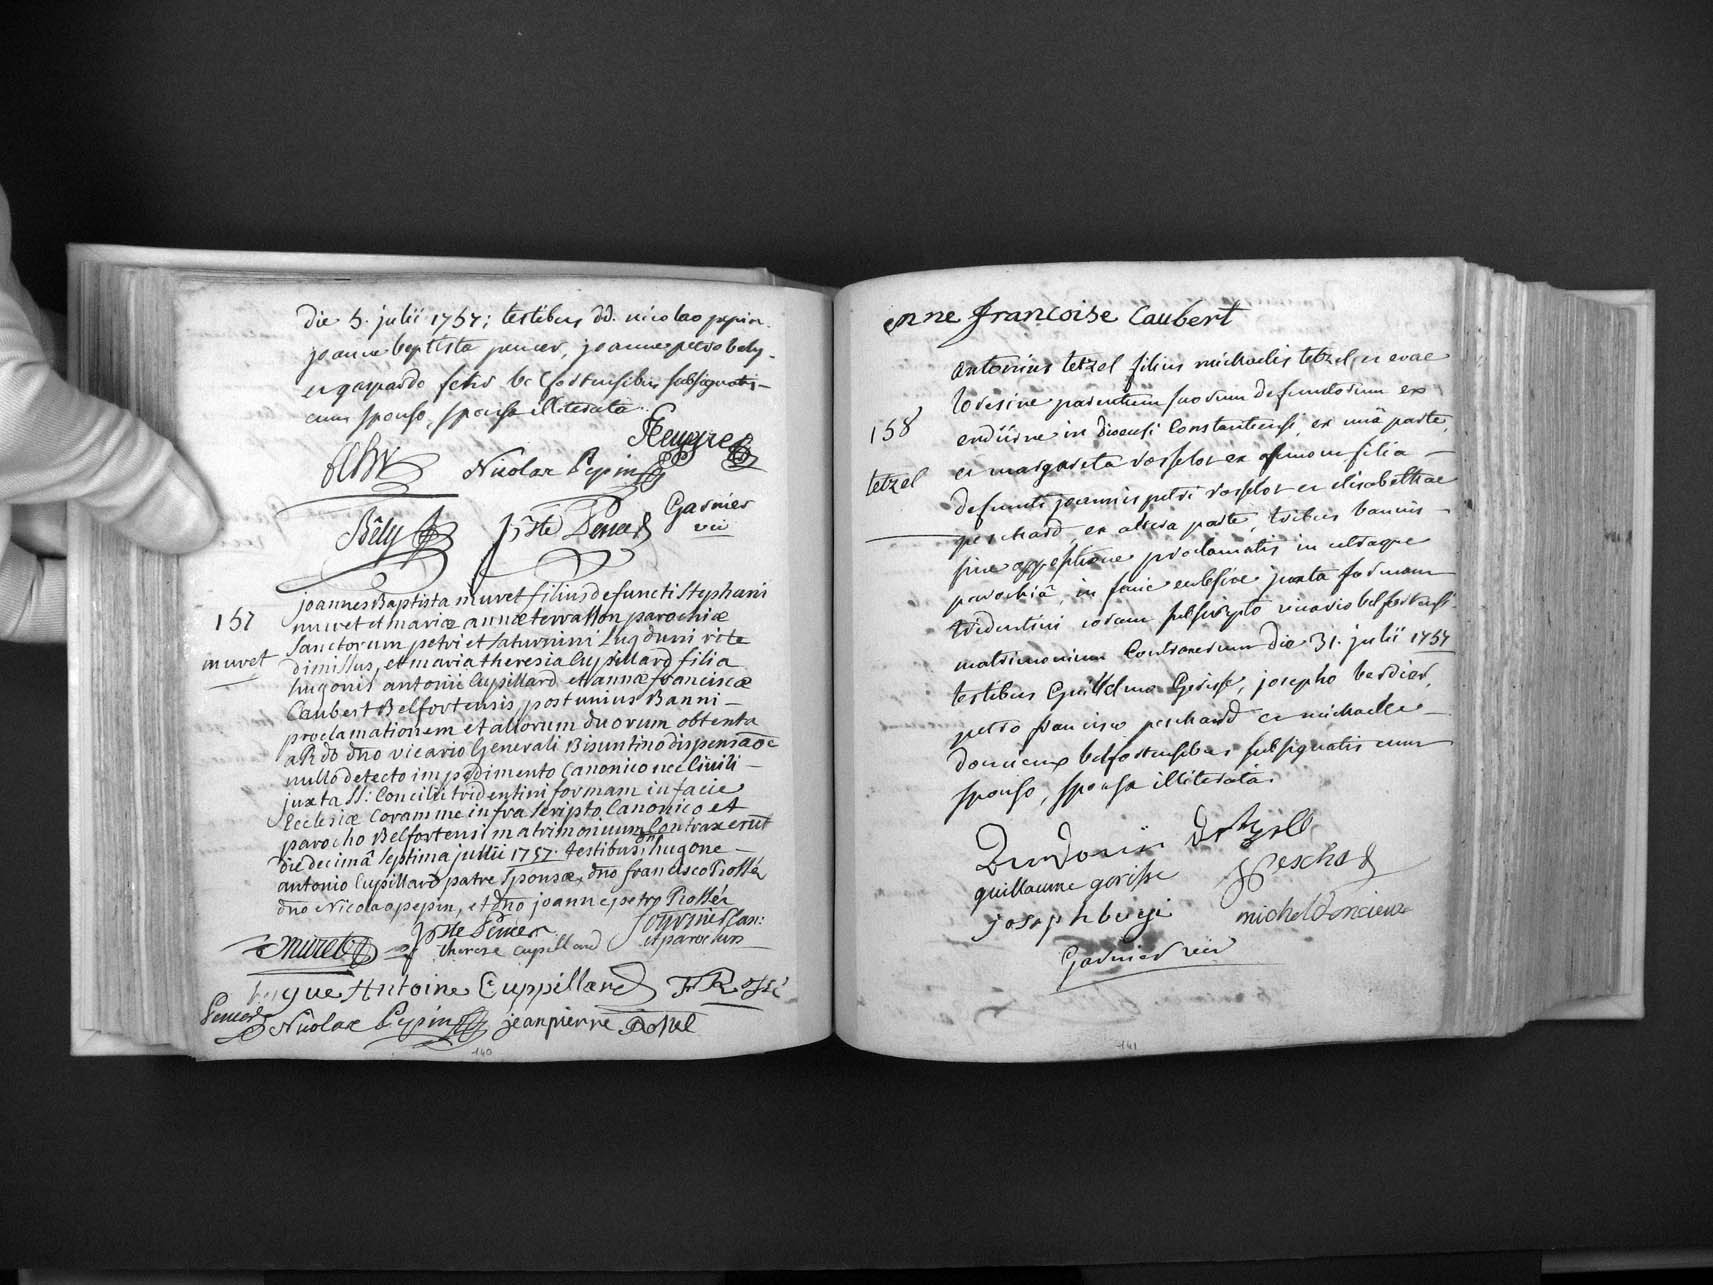 die 5. julii 1757; testibus dd. nicolao pepin.
joanne baptista pencer, joanne petro bely
et gaspardo belfortensibus subsignatis
cum sponso, sponsa illiterata.
Nicolas Pepin
Garnier
Bêly
vic
157
muret
joannes Baptista muret filius defuncti Stephani
muret et mariæ annæ terrasson parochiæ
Sanctorum petri et Saturnini Lugduni rite
dimissus, et maria theresia Cupillard filia
hugonis antonii Cupillard et annæ franciscæ
Caubert Belfortensis, post unius Banni
proclamationem et aliorum duorum obtenta
a Rdo dno vicario Generali Bisuntino dispensaoe
nullo detecto impedimento Canonico nec Civili
juxta SS: Concilii tridentini formam in facie
Ecclesiæ Coram me infra scripto Canonico et
parocho Belfortensi matrimonium Contraxerut
die decimâ Septima julii 1757. testibus dno hugone
antonio Cupillard patre Sponsæ, dno francisco Rossél
dno Nicolao pepin, et dno joanne petro Rossél
muret
therese cupillard
et parochus
hugue Antoine Cuppillard
Nicolas Pepin jeanpierre Rossel
140
anne francoise Caubert
158
tetzel
antonius tetzel filius michaelis tetzel et evae
parentum suorum defunctorum ex
in diocesi Constantensi, ex unâ parte,
et margarita rosselot ex filia
defuncti joannis petri rosselot et elisabethae
peschard, ex altera parte, tribus bannis
sine oppositione proclamatis in utraque
parochiâ, in facie ecclesiae juxta formam
tridentini coram subscripto vicario belfortensi
matrimonium Contraxerunt die 31. julii 1757
testibus Guillelmo Gerisse, josepho
petro francisco peschard et michaele
doncieux belfortensibus subsignatis cum
sponso, sponsa illiterata.
guillaume gerisse
Peschard
joseph
michel doncieux
Garnier vic
141